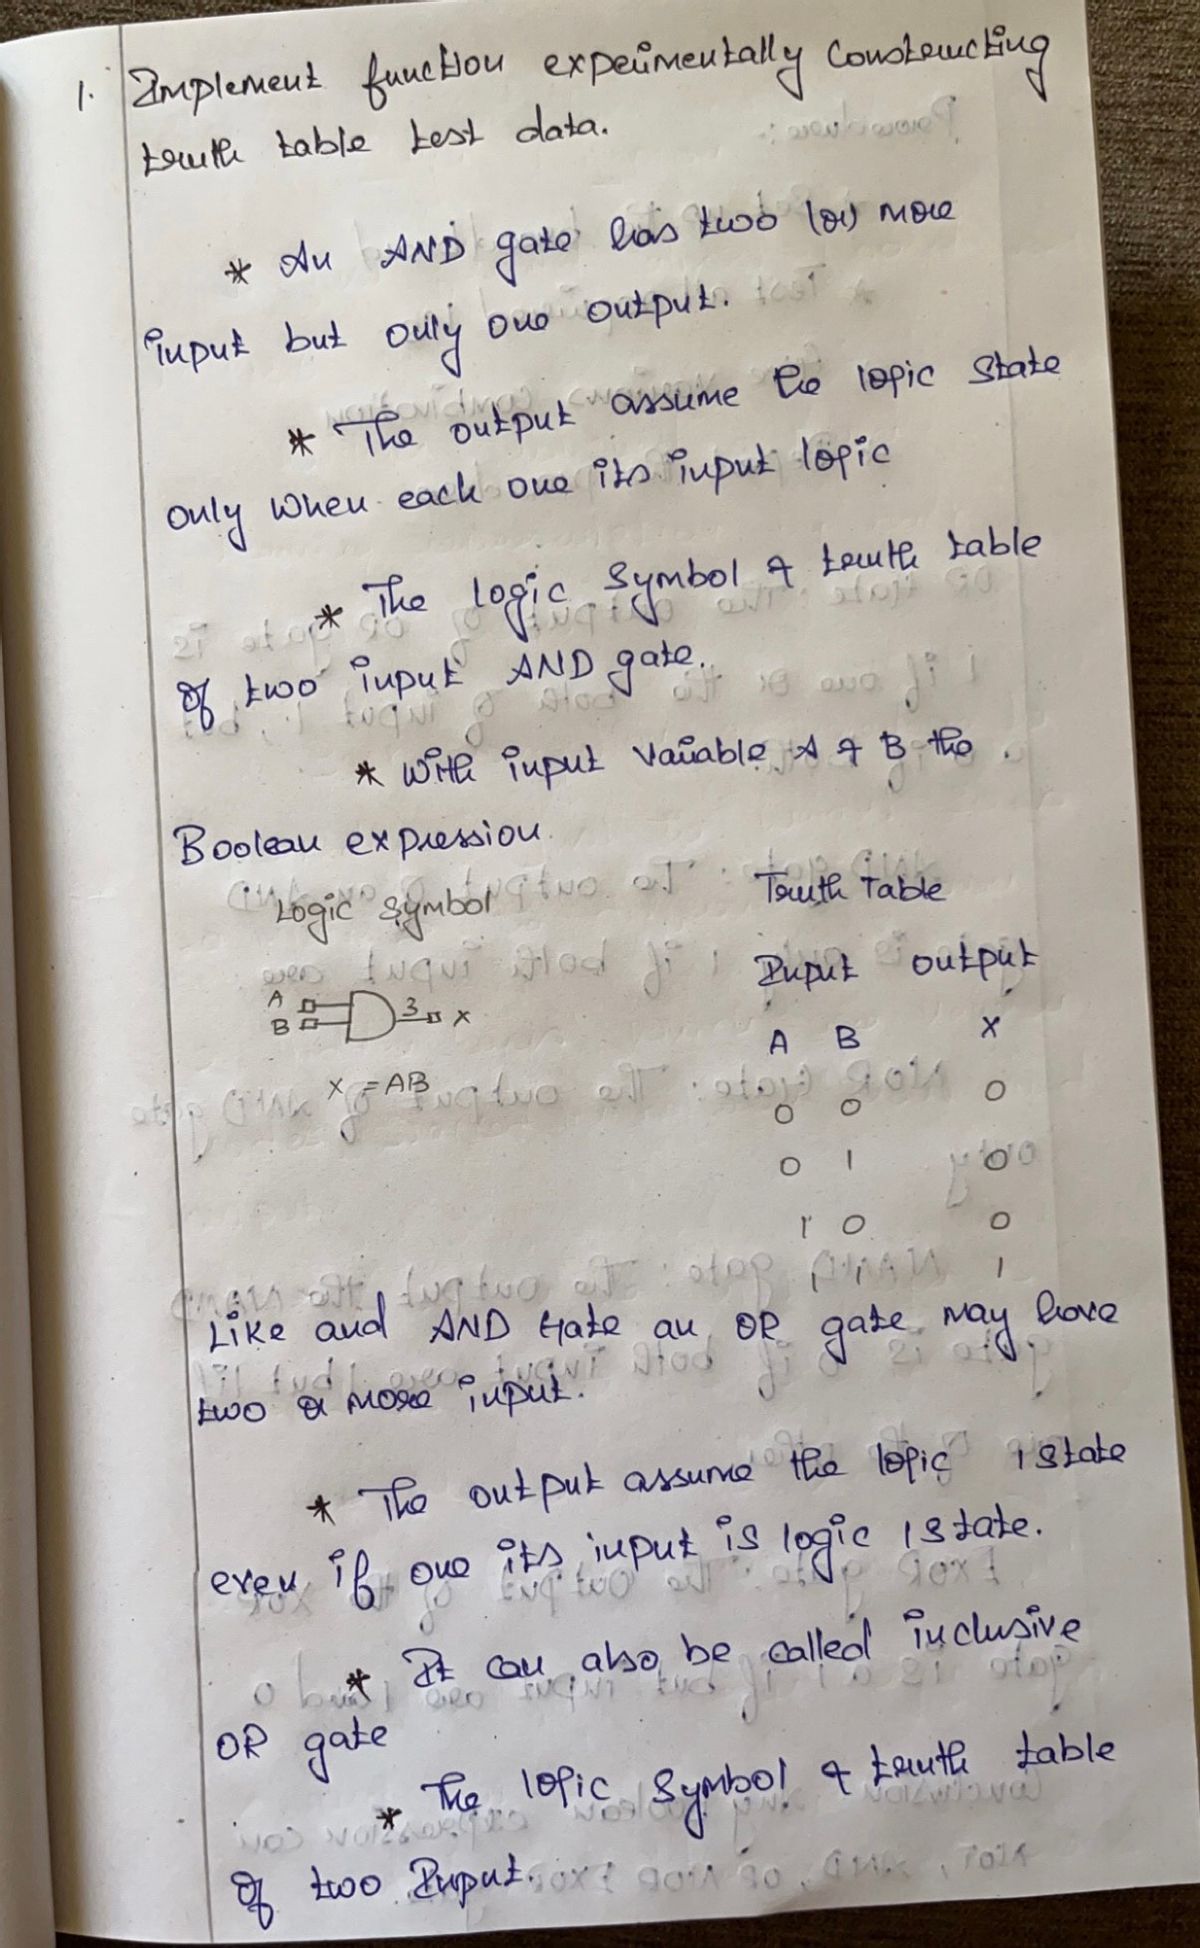 1. Implement function experimentally constructing
truth table test data.
* An AND gate has two (or) more
input but only one output.
* The output assume the logic state
only when each one its input logic
* The logic symbol & truth table
of two input AND gate.
* With input variable A & B the
Boolean expression.
Logic symbol
Truth Table
Input output
A B X
A
B 3 X
X = AB
0 0 0
0 1 0
1 0 0
1 1 1
Like and AND Gate an OR gate may have
two or more input.
* The output assume the logic 1 state
even if one its input is logic 1 state.
* It can also be called inclusive
OR gate
* The logic symbol & truth table
of two Input.